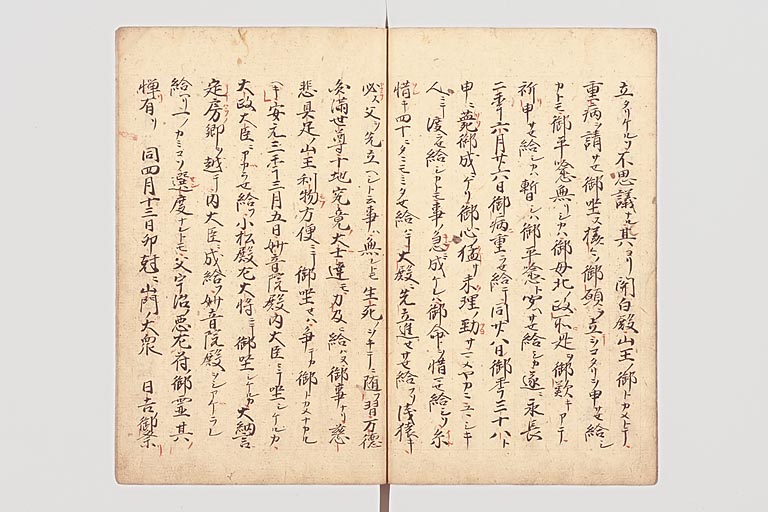 立タリケルソ不思議ナル其ヨリ関白殿山王ノ御トカメトテ
重病ヲ請サセ御坐ス様々ノ御願ヲ立シマイラセ申サセ給シ
カトモ御平喩無リシカハ御母北ノ政所 御歎キアテ
祈申サセ給シカハ暫シハ御平喩 サセ給シカ遂ニ永長
二年六月廿六日御病重ラセ給テ同廿八日御年三十八ト
申ニ薨御成ニケリ御心ノ猛サ 理ノ勁サ サシモユヽシキ
人ニテ渡セ給シカトモ事ノ急ニ成ケレハ御命ヲ惜マセ給シソカシ
惜キ四十ニタニモミタセ給ハテ大殿ニ先立進セサセ給フソ
必ス父ヲ先立ヘシト云事ハ無レトモ生死ノヲキテニ随フ習万徳
円満世尊十地究竟大士達モ力及ヒ給ハヌ御事ナリ慈
悲具足ノ山王利物方便ニテ御坐セハ争テカ御トカメナカルヘキ
安元三年三月五日妙音院殿内大臣ニテ坐シケルカ
大政大臣ニアカラセ給フ小松殿左大将ニテ御坐ケルカ大納言
定房卿ヲ越テ内大臣ニ成給フ妙音院殿ヲシアケラレ
給フ 選度ナレトモ父宇治ノ悪左府御霊其
憚有リ 同四月十三日卯尅ニ山門ノ大衆 日吉御祭